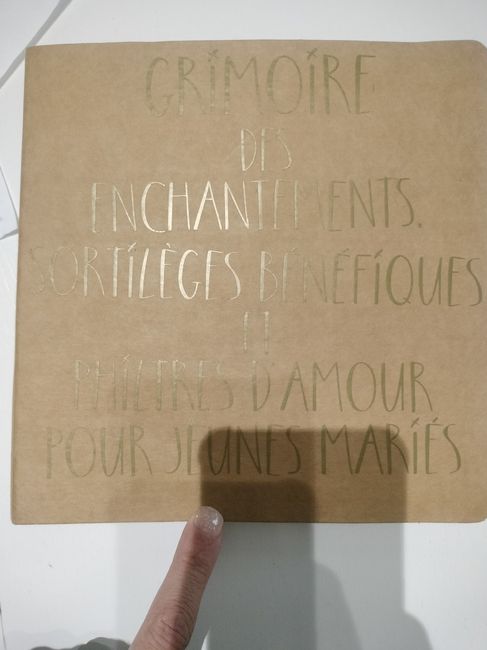 GRIMOIRE
DES
ENCHANTEMENTS,
SORTILÈGES BÉNÉFIQUES
ET
PHILTRES D'AMOUR
POUR JEUNES MARIÉS